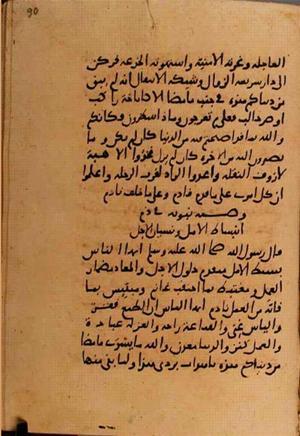 العاجله وغرته الامنية واستهوته الخدعة فركن
الى دار سريعة الزوال وشيكة الانتقال انه لم يبق
من دنياكم هذه في جنب ما مضا الا كاناخة راكب
او صر حالب فعلى م تعرجون وماذا تنتظرون فكانكم
والله بما قد اصبحتم فيه من الدنيا كان لم يكن وما
تصيرون اليه من الاخرة كان لم يزل فخذوا الاهبة
لازوف النقلة واعدوا الزاد لقرب الرحلة واعلموا
ان كل امرئ على ما قدم قادم وعلى ما خلف نادم
وخطبته في ذم
انبساط الامل ونسيان الاجل
قال رسول الله صلى الله عليه وسلم ايها الناس
بسط الامل متقدم حلول الاجل والمعاد مضمار
العمل و مغتبط بما احتقب غانم ومبتئس بما
فاته من العمل نادم ايها الناس ان الطمع فقر
والياس غنى والقناعة راحة والعزلة عبادة
والعمل كنز والدنيا معدن والله ما يسوى ما مضا
من دنياكم هذه باهداب بردي هذا ولما بقي منها